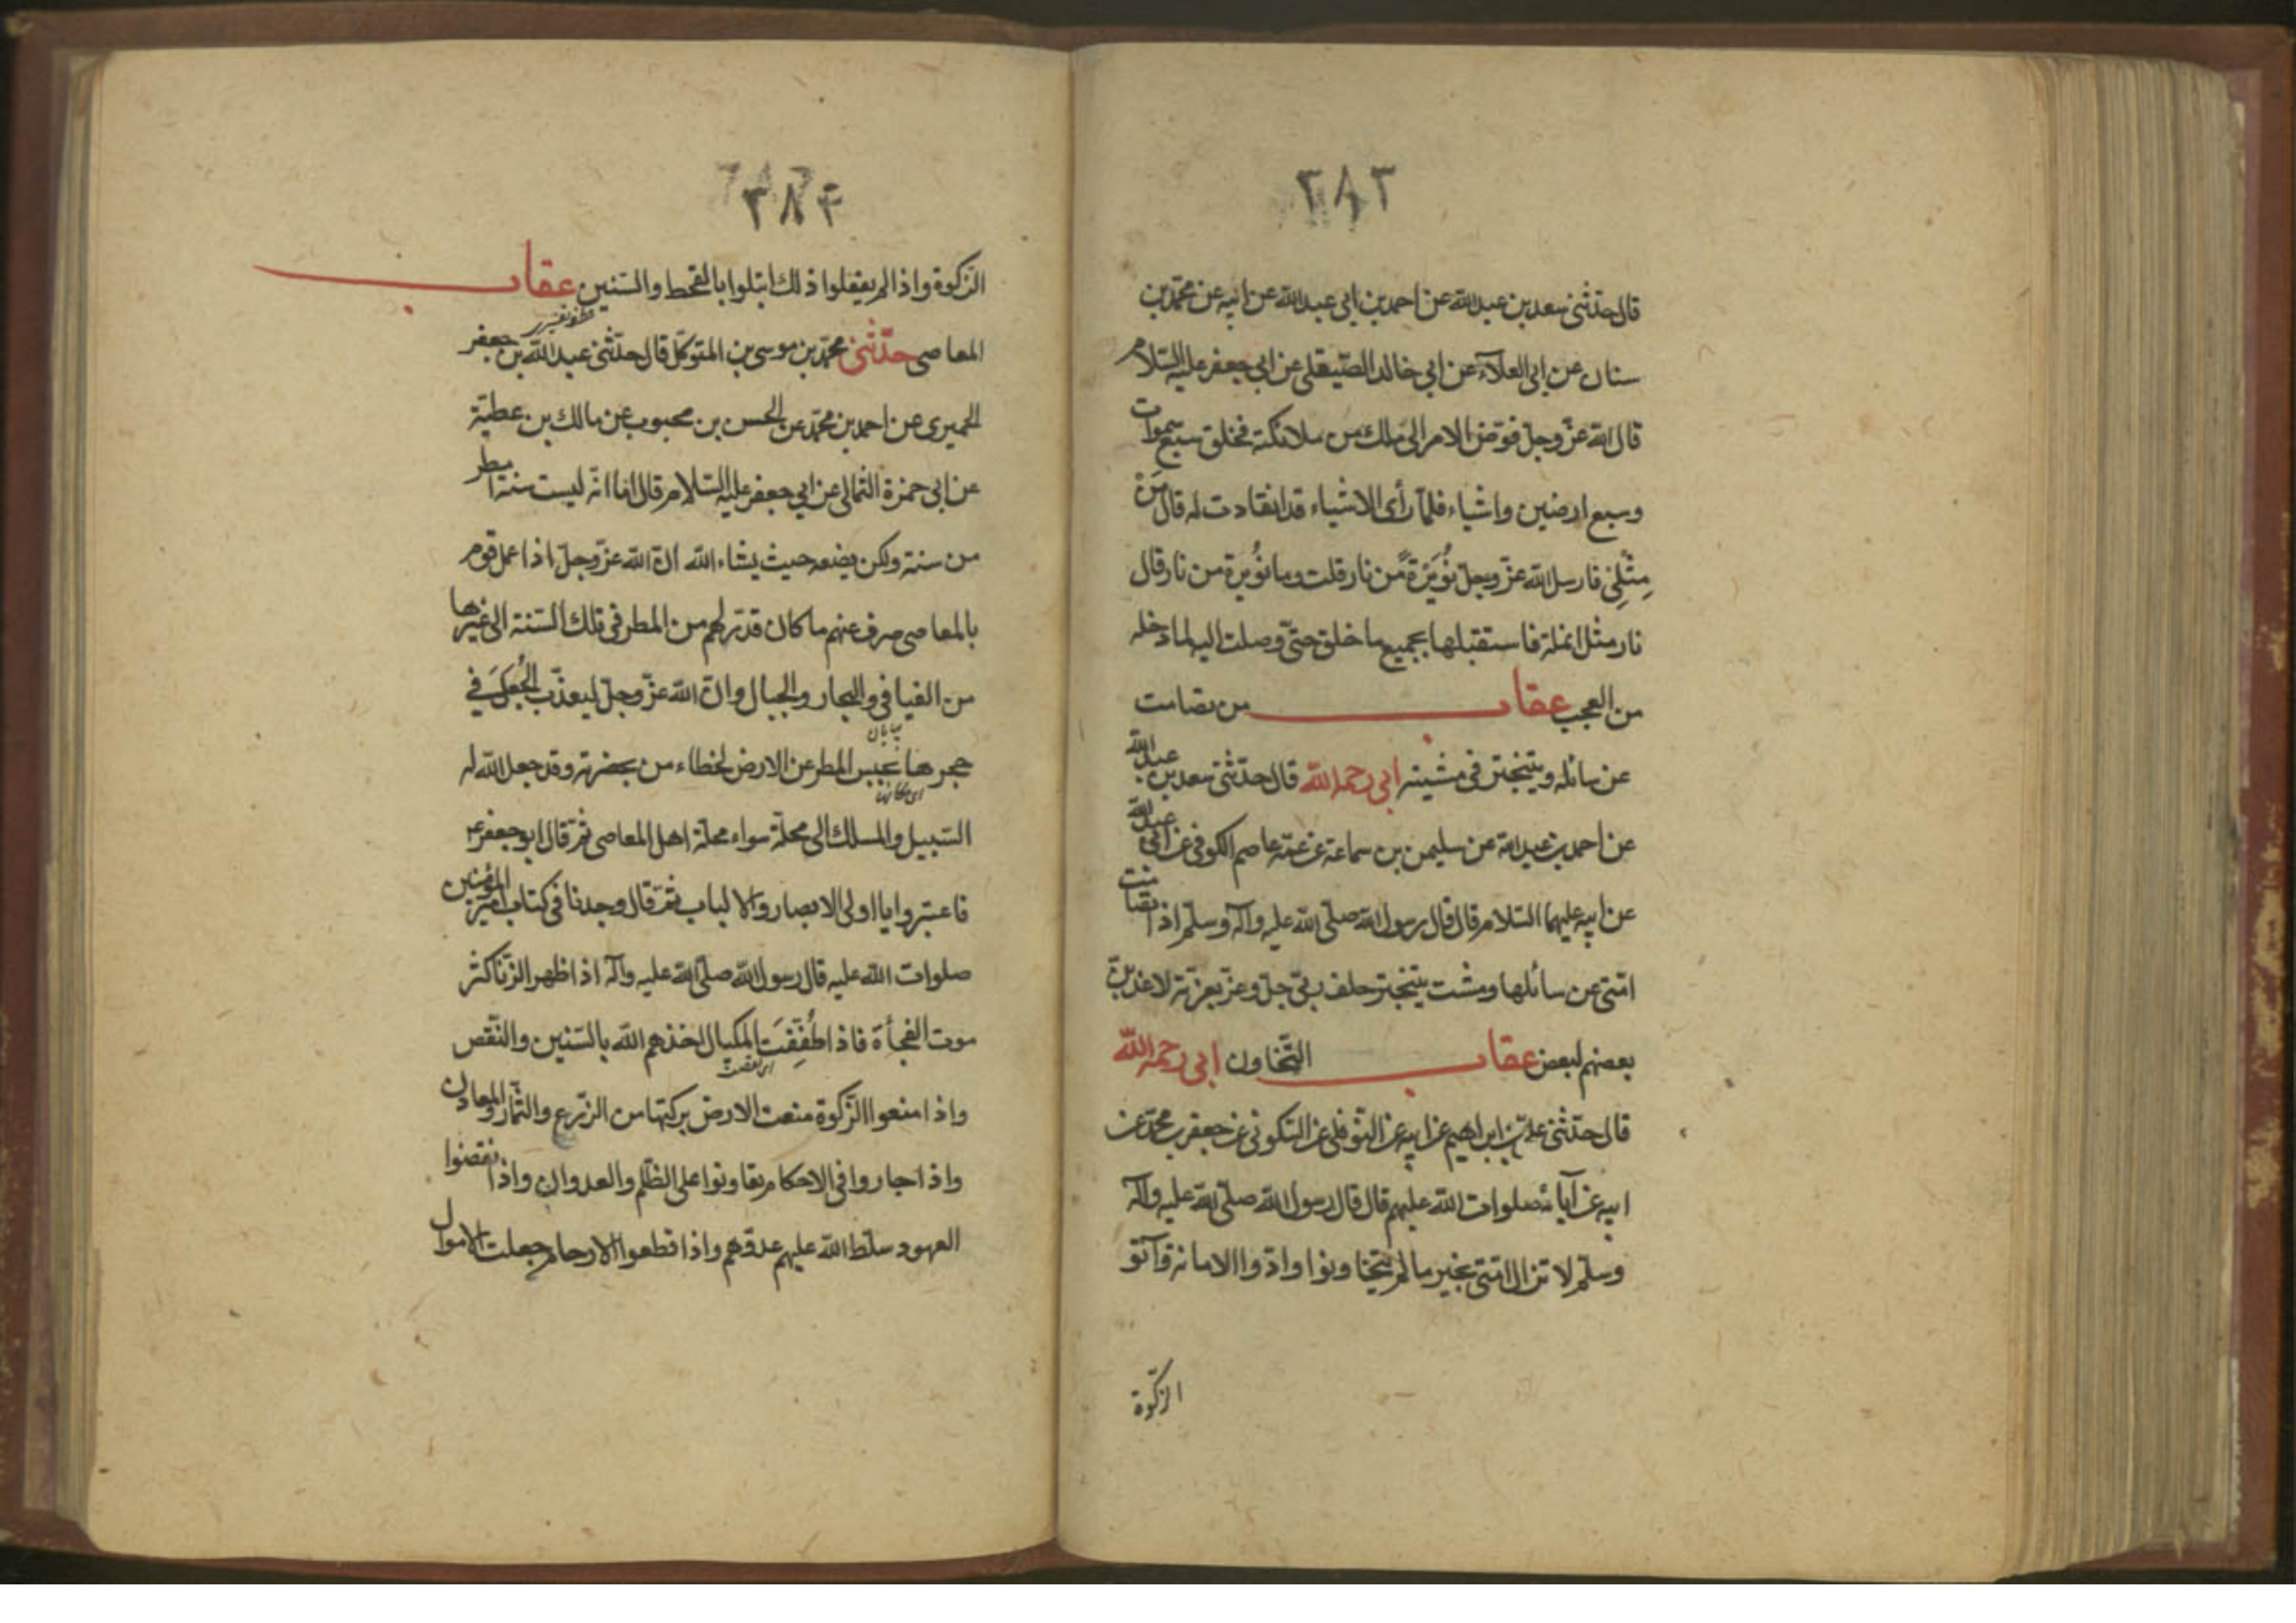 ٣٨٣
قال حدّثنى سعد بن عبد الله عن احمد بن ابى عبد الله عن ابيه عن محمّد بن
سنان عن ابى العلآء عن ابى خالد الصّيقلى عن ابى جعفر عليه السّلام
قال الله عزّ وجلّ فوّض الامر الى ملك من ملائكته فخلق سبع سموات
وسبع ارضين واشياء فلمّا رأى الاشياء قد انقادت له قال مَن
مِثْلِى فارسل الله عزّ وجلّ نُوَيْرَةً من نار قلت وما نُوَيرة من نار قال
نار مثل انملة فاستقبلها بجميع ما خلق حتّى وصلت اليه لما دخله
من العجب عقاب من تصامت
عن سائله ويتبختر فى مشيته ابى رحمه الله قال حدّثنى سعد بن عبد الله
عن احمد بن عبد الله عن سليمن بن سماعة عن عمّه عاصم الكوفى عن ابى عبد الله
عن ابيه عليهما السّلام قال قال رسول الله صلّى الله عليه وآله وسلّم اذا تصامت
امّتى عن سائلها ومشت بتبختر حلف ربّى جلّ وعزّ بعزّته لاعذبنّ
بعضهم لبعض عقاب التّخاون ابى رحمه الله
قال حدّثنى علىّ بن ابراهيم عن ابيه عن النوفلى عن السّكونى عن جعفر بن محمّد عن
ابيه عن آبائه صلوات الله عليهم قال قال رسول الله صلّى الله عليه وآله
وسلّم لا تزال امّتى بخير ما لم يتخاونوا وادّوا الامانة وآتو
الزكوة
٣٨۴
الزّكوة واذا لم يفعلوا ذلك ابتلوا بالقحط والسّنين عقاب
المعاصى حدّثنى محمّد بن موسى بن المتوكّل قال حدّثنى عبد الله بن جعفر
الحميرى عن احمد بن محمّد عن الحسن بن محبوب عن مالك بن عطيّة
عن ابى حمزة الثمالى عن ابى جعفر عليه السّلام قال اما انّه ليست سنة امطر
من سنة ولكن يضعه حيث يشاء الله انّ الله عزّ وجلّ اذا عمل قوم
بالمعاصى صرف عنهم ما كان قدّر لهم من المطر فى تلك السّنة الى غيرها
من الفيافى والبحار والجبال وانّ الله عزّ وجلّ ليعذّب الجُعَلَ فى
بيابان
حجرها بحبس المطر عن الارض لخطاء من بحضرته وقد جعل الله له
السّبيل والمسلك الى محلّة سواء محلّة اهل المعاصى ثمّ قال ابو جعفر ع
فاعتبروا يا اولى الابصار والالباب ثمّ قال وجدنا فى كتاب امير المؤمنين
صلوات الله عليه قال رسول الله صلّى الله عليه وآله اذا ظهر الزّنا كثر
موت الفجأة فاذا طُفِّفَت المكيال اخذهم الله بالسّنين والنّقص
واذا منعوا الزّكوة منعت الارض بركتها من الزّرع والثّمار والمعادن
واذا جاروا فى الاحكام تعاونوا على الظّلم والعدوان واذا نقضوا
العهود سلّط الله عليهم عدوّهم واذا قطعوا الارحام جعلت الاموال